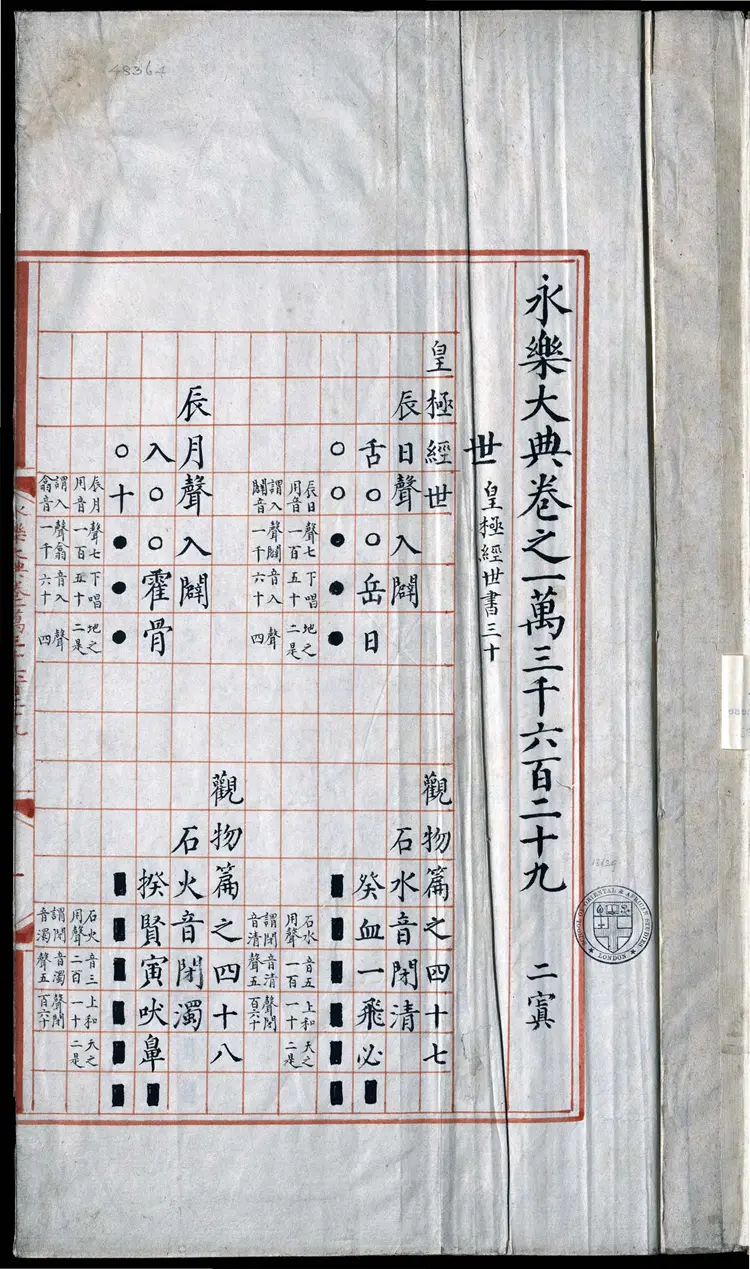 48364
永樂大典卷之一萬三千六百二十九 二寘
世 皇極經世書三十
皇極經世 觀物篇之四十七
辰日聲入闢 石水音閉清
舌○○岳日 癸血一飛必■
○○●●● ■■■■■■
辰日聲七下唱地之
用音一百五十二是
謂入聲闢音入聲
闢音一千六十四
石水音五上和天之
用聲一百一十二是
謂閉音清聲閉
音清聲五百六十
觀物篇之四十八
辰月聲入闢 石火音閉濁
入○○霍骨 揆賢寅吠鼻■
○十●●● ■■■■■■
辰月聲七下唱地之
用音一百五十二是
謂入聲翕音入聲
翕音一千六十四
石火音三上和天之
用聲二百一十二是
謂閉音濁聲閉
音濁聲五百六十
SCHOOL OF ORIENTAL & AFRICAN STUDIES
LONDON